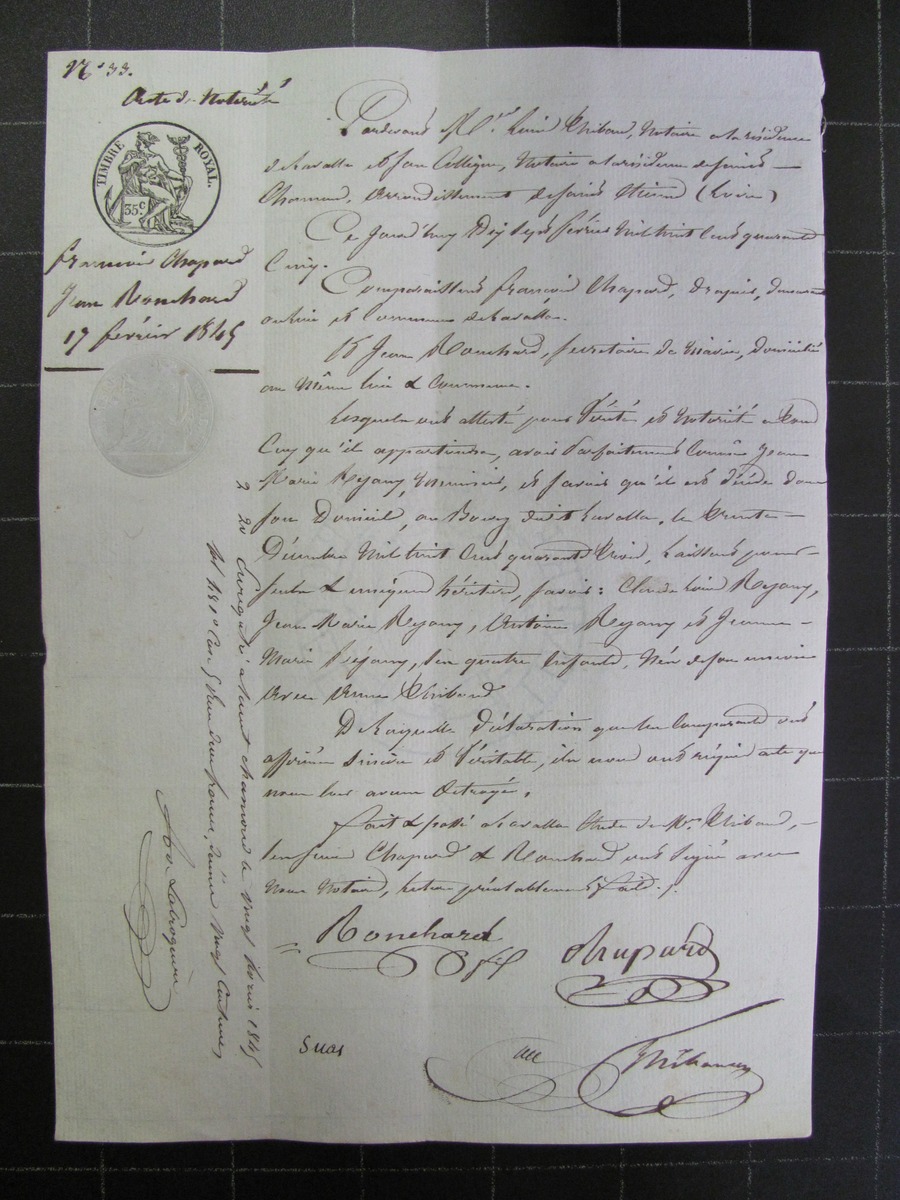 N° 33.
Acte de Notoriété
TIMBRE ROYAL.
35 c.
François Chapard
Jean Ronchard
17 février 1845
Pardevant Me Thibaud, Notaire à la résidence
de Lavalla et son Collègue, Notaire à la résidence de saint
Chamond, arrondissement de saint Étienne (Loire)
Ce jourd'huy Dix sept février Mil huit Cent quarante
Cinq.
Comparaissent françois Chapard, demeurant
au lieu et Commune de Lavalla.
Et Jean Ronchard, secrétaire de Mairie, domicilié
au Même lieu & Commune.
Lesquels ont attesté pour Vérité et Notoriété à tous
Ceux qu'il appartiendra, avoir Parfaitement Connu Jean
Marie et savoir qu'il est décédé dans
son Domicile, au Bourg dudit Lavalla, le trente
Décembre Mil huit Cent quarante Laissant pour
seuls & uniques héritiers, savoir : Claude
Jean Marie Antoine et Jeanne
Marie ses quatre Enfants, Nés de son union
avec Anne Thibaud
De Laquelle déclaration que les Comparants ont
affirmée Sincère et Véritable, ils nous ont requis acte que
nous leur avons Octroyé.
fait & passé à Lavalla Étude de Me Thibaud,
les sieurs Chapard & Ronchard ont signé avec
Nous Notaires, lecture préalablement faite.
Ronchard
Chapard
Thibaud
Enregistré à Saint chamond le neuf février 1845
fol. 180 Reçu deux francs, dixième vingt Centimes